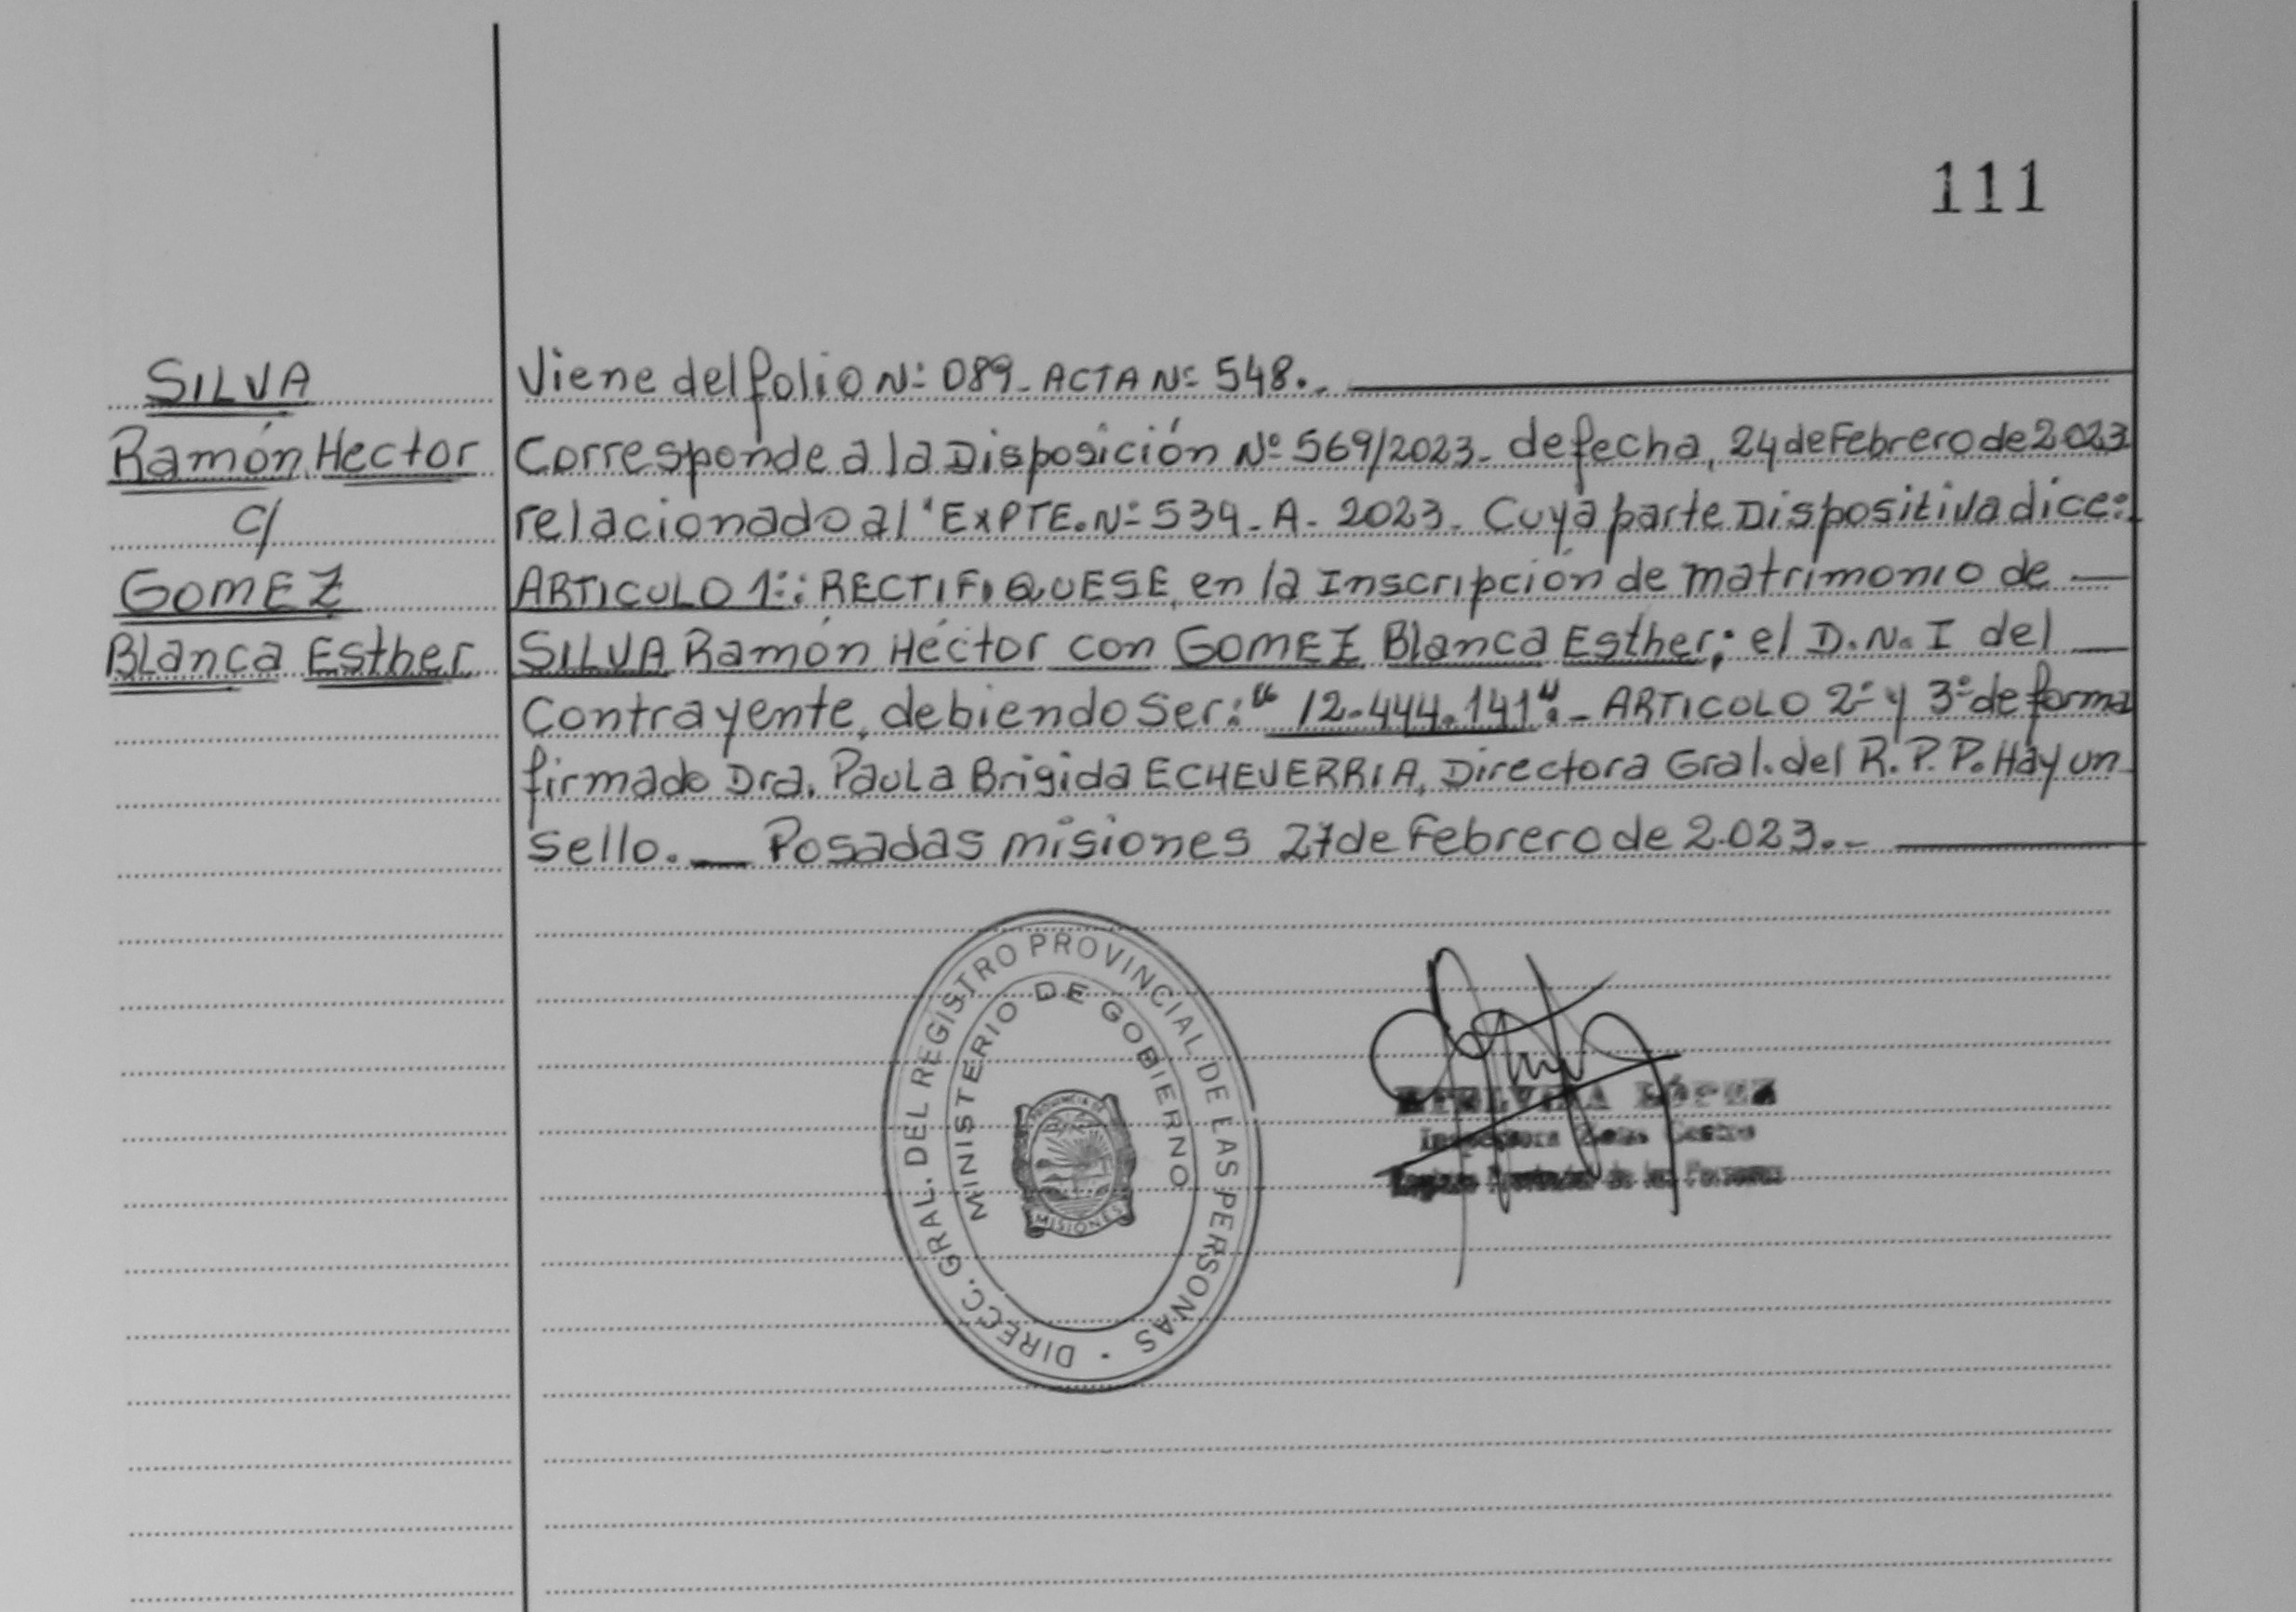 111
SILVA
Ramón Hector
c/
GOMEZ
Blanca Esther
Viene del folio Nº 089- ACTA Nº 548.-
Corresponde a la Disposición Nº 569/2023- de fecha, 24 de Febrero de 2023
relacionado al "EXPTE. Nº 534- A- 2023- Cuya parte Dispositiva dice:
ARTICULO 1º: RECTIFIQUESE, en la Inscripción de matrimonio de
SILVA Ramón Héctor con GOMEZ Blanca Esther; el D.N.I del
Contrayente, debiendo Ser: "12-444.141".- ARTICOLO 2º y 3º de forma
firmado Dra. Paula Brigida ECHEVERRIA, Directora Gral. del R.P.P. Hay un
Sello. Posadas misiones 27 de Febrero de 2.023.-
DIRECC. GRAL. DEL REGISTRO PROVINCIAL DE LAS PERSONAS
MINISTERIO DE GOBIERNO
PROVINCIA DE
MISIONES
LÓPEZ
Inspectora Zona Centro
Registro Provincial de las Personas